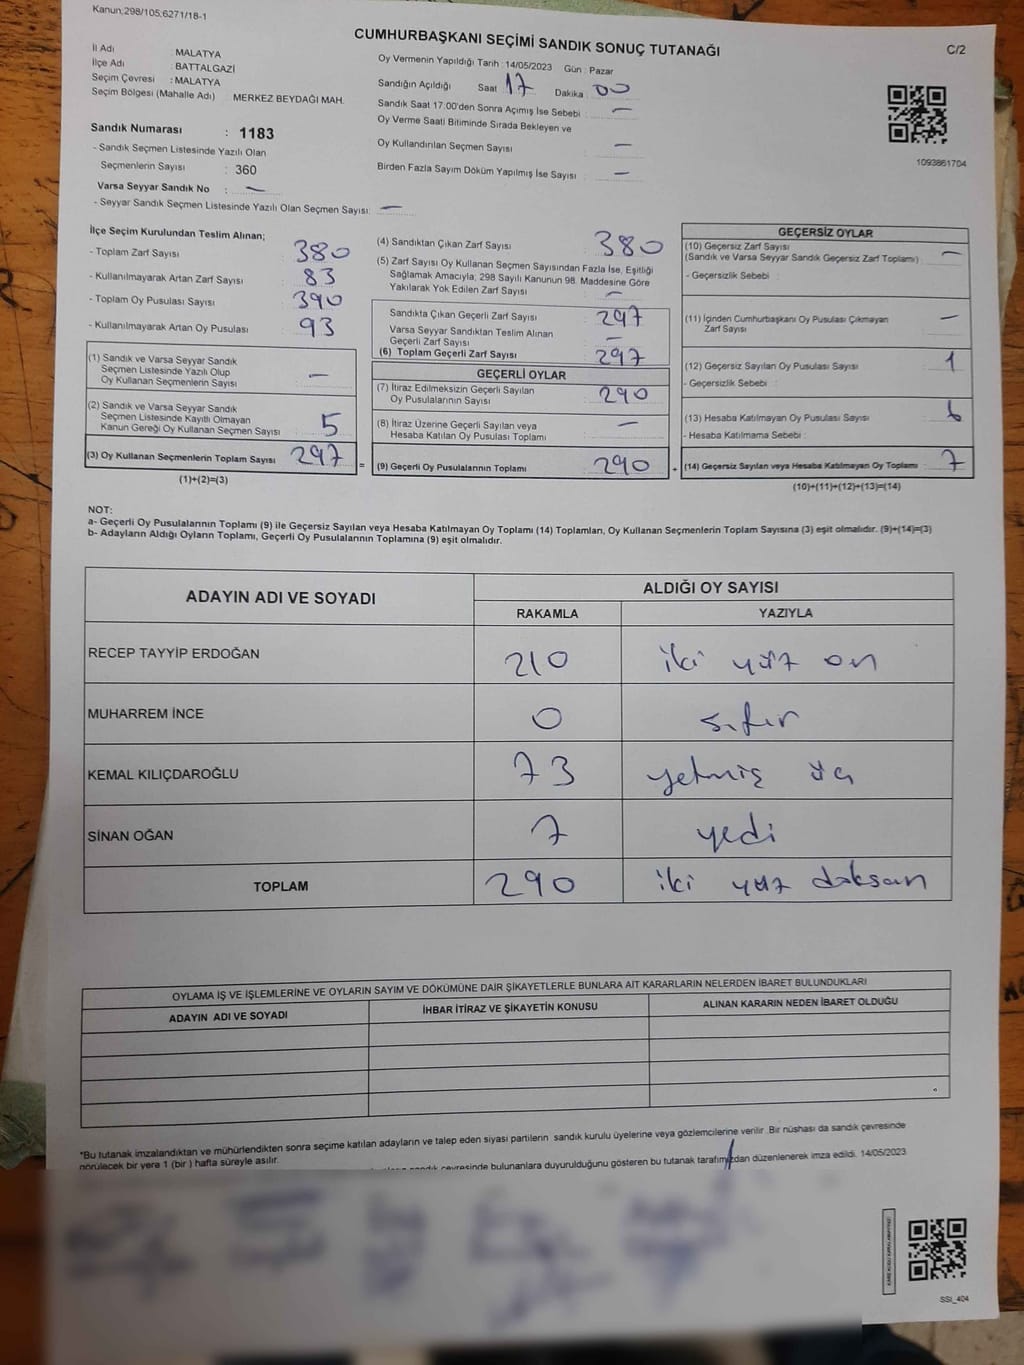 Kanun;298/105;6271/18-1
CUMHURBAŞKANI SEÇİMİ SANDIK SONUÇ TUTANAĞI
C/2
İl Adı : MALATYA
İlçe Adı : BATTALGAZİ
Seçim Çevresi : MALATYA
Seçim Bölgesi (Mahalle Adı) : MERKEZ BEYDAĞI MAH.
Sandık Numarası : 1183
- Sandık Seçmen Listesinde Yazılı Olan
Seçmenlerin Sayısı : 360
Varsa Seyyar Sandık No : —
- Seyyar Sandık Seçmen Listesinde Yazılı Olan Seçmen Sayısı: —
Oy Vermenin Yapıldığı Tarih : 14/05/2023 Gün : Pazar
Sandığın Açıldığı Saat 17 Dakika 00
Sandık Saat 17:00'den Sonra Açımış İse Sebebi : —
Oy Verme Saati Bitiminde Sırada Bekleyen ve
Oy Kullandırılan Seçmen Sayısı : —
Birden Fazla Sayım Döküm Yapılmış İse Sayısı : —
1093861704
İlçe Seçim Kurulundan Teslim Alınan;
- Toplam Zarf Sayısı : 380
- Kullanılmayarak Artan Zarf Sayısı : 83
- Toplam Oy Pusulası Sayısı : 390
- Kullanılmayarak Artan Oy Pusulası : 93
(1) Sandık ve Varsa Seyyar Sandık
Seçmen Listesinde Yazılı Olup
Oy Kullanan Seçmenlerin Sayısı : —
(2) Sandık ve Varsa Seyyar Sandık
Seçmen Listesinde Kayıtlı Olmayan
Kanun Gereği Oy Kullanan Seçmen Sayısı : 5
(3) Oy Kullanan Seçmenlerin Toplam Sayısı : 297
(1)+(2)=(3)
(4) Sandıktan Çıkan Zarf Sayısı : 380
(5) Zarf Sayısı Oy Kullanan Seçmen Sayısından Fazla İse, Eşitliği
Sağlamak Amacıyla; 298 Sayılı Kanunun 98. Maddesine Göre
Yakılarak Yok Edilen Zarf Sayısı : —
Sandıkta Çıkan Geçerli Zarf Sayısı : 297
Varsa Seyyar Sandıktan Teslim Alınan
Geçerli Zarf Sayısı : —
(6) Toplam Geçerli Zarf Sayısı : 297
GEÇERLİ OYLAR
(7) İtiraz Edilmeksizin Geçerli Sayılan
Oy Pusulalarının Sayısı : 290
(8) İtiraz Üzerine Geçerli Sayılan veya
Hesaba Katılan Oy Pusulası Toplamı : —
= (9) Geçerli Oy Pusulalarının Toplamı : 290
GEÇERSİZ OYLAR
(10) Geçersiz Zarf Sayısı
(Sandık ve Varsa Seyyar Sandık Geçersiz Zarf Toplamı) : —
- Geçersizlik Sebebi :
(11) İçinden Cumhurbaşkanı Oy Pusulası Çıkmayan
Zarf Sayısı : —
(12) Geçersiz Sayılan Oy Pusulası Sayısı : 1
- Geçersizlik Sebebi :
(13) Hesaba Katılmayan Oy Pusulası Sayısı : 6
- Hesaba Katılmama Sebebi :
+ (14) Geçersiz Sayılan veya Hesaba Katılmayan Oy Toplamı : 7
(10)+(11)+(12)+(13)=(14)
NOT:
a- Geçerli Oy Pusulalarının Toplamı (9) ile Geçersiz Sayılan veya Hesaba Katılmayan Oy Toplamı (14) Toplamları, Oy Kullanan Seçmenlerin Toplam Sayısına (3) eşit olmalıdır. (9)+(14)=(3)
b- Adayların Aldığı Oyların Toplamı, Geçerli Oy Pusulalarının Toplamına (9) eşit olmalıdır.
ADAYIN ADI VE SOYADI
ALDIĞI OY SAYISI
RAKAMLA YAZIYLA
RECEP TAYYİP ERDOĞAN 210 iki yüz on
MUHARREM İNCE 0 sıfır
KEMAL KILIÇDAROĞLU 73 yetmiş üç
SİNAN OĞAN 7 yedi
TOPLAM 290 iki yüz doksan
OYLAMA İŞ VE İŞLEMLERİNE VE OYLARIN SAYIM VE DÖKÜMÜNE DAİR ŞİKAYETLERLE BUNLARA AİT KARARLARIN NELERDEN İBARET BULUNDUKLARI
ADAYIN ADI VE SOYADI İHBAR İTİRAZ VE ŞİKAYETİN KONUSU ALINAN KARARIN NEDEN İBARET OLDUĞU
*Bu tutanak imzalandıktan ve mühürlendikten sonra seçime katılan adayların ve talep eden siyasi partilerin sandık kurulu üyelerine veya gözlemcilerine verilir .Bir nüshası da sandık çevresinde
görülecek bir yere 1 (bir ) hafta süreyle asılır.
sandık çevresinde bulunanlara duyurulduğunu gösteren bu tutanak tarafımızdan düzenlenerek imza edildi. 14/05/2023
SSI_404